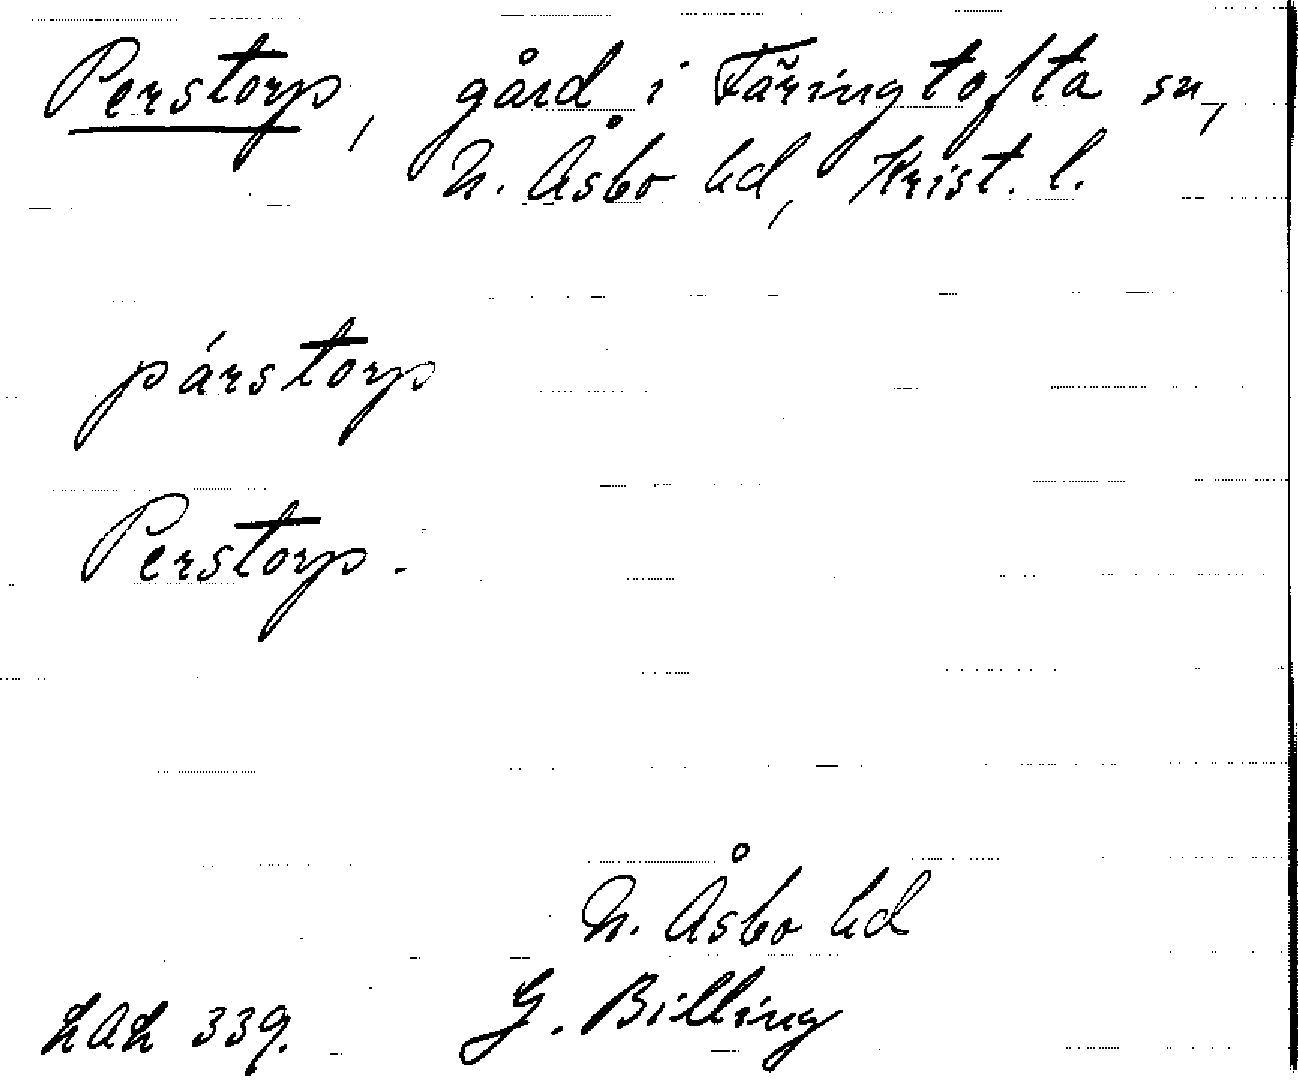 Perstorp, gård i Färingtofta sn,
N. Åsbo hd, Krist. l.
párstorp
Perstorp.
N. Åsbo hd
LAL 339. G. Billing